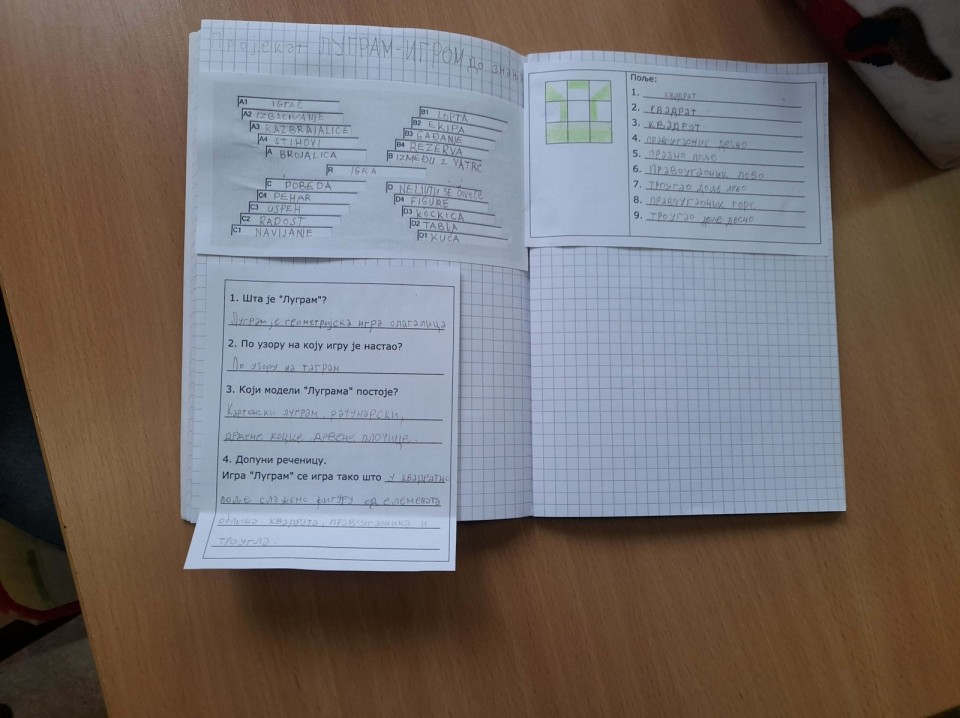 Пројекат ЛУГРАМ-ИГРОМ до знања
A1 IGRAČ
A2 IZBACIVANJE
A3 RAZBRAJALICE
A4 STIHOVI
A BROJALICA
B1 LOPTA
B2 EKIPA
B3 GAĐANJE
B4 REZERVA
B IZMEĐU 2 VATRE
R IGRA
C POBEDA
C4 PEHAR
C3 USPEH
C2 RADOST
C1 NAVIJANJE
D NE LJUTI SE ČOVEČE
D4 FIGURE
D3 KOCKICA
D2 TABLA
D1 KUĆA
1. Шта је "Луграм"?
Луграм је геометријска игра слагалица
2. По узору на коју игру је настао?
По узору на таграм
3. Који модели "Луграма" постоје?
Картонски луграм, рачунарски,
дрвене коцке, дрвене плочице.
4. Допуни реченицу.
Игра "Луграм" се игра тако што у квадратно
поље слажемо фигуру од елемената
облика квадрата, правоугаоника и
троугла.
Поље:
1. квадрат
2. квадрат
3. квадрат
4. правоугаоник десно
5. празно поље
6. Правоугаоник лево
7. троугао доле лево
8. правоугаоник горе
9. троугао доле десно